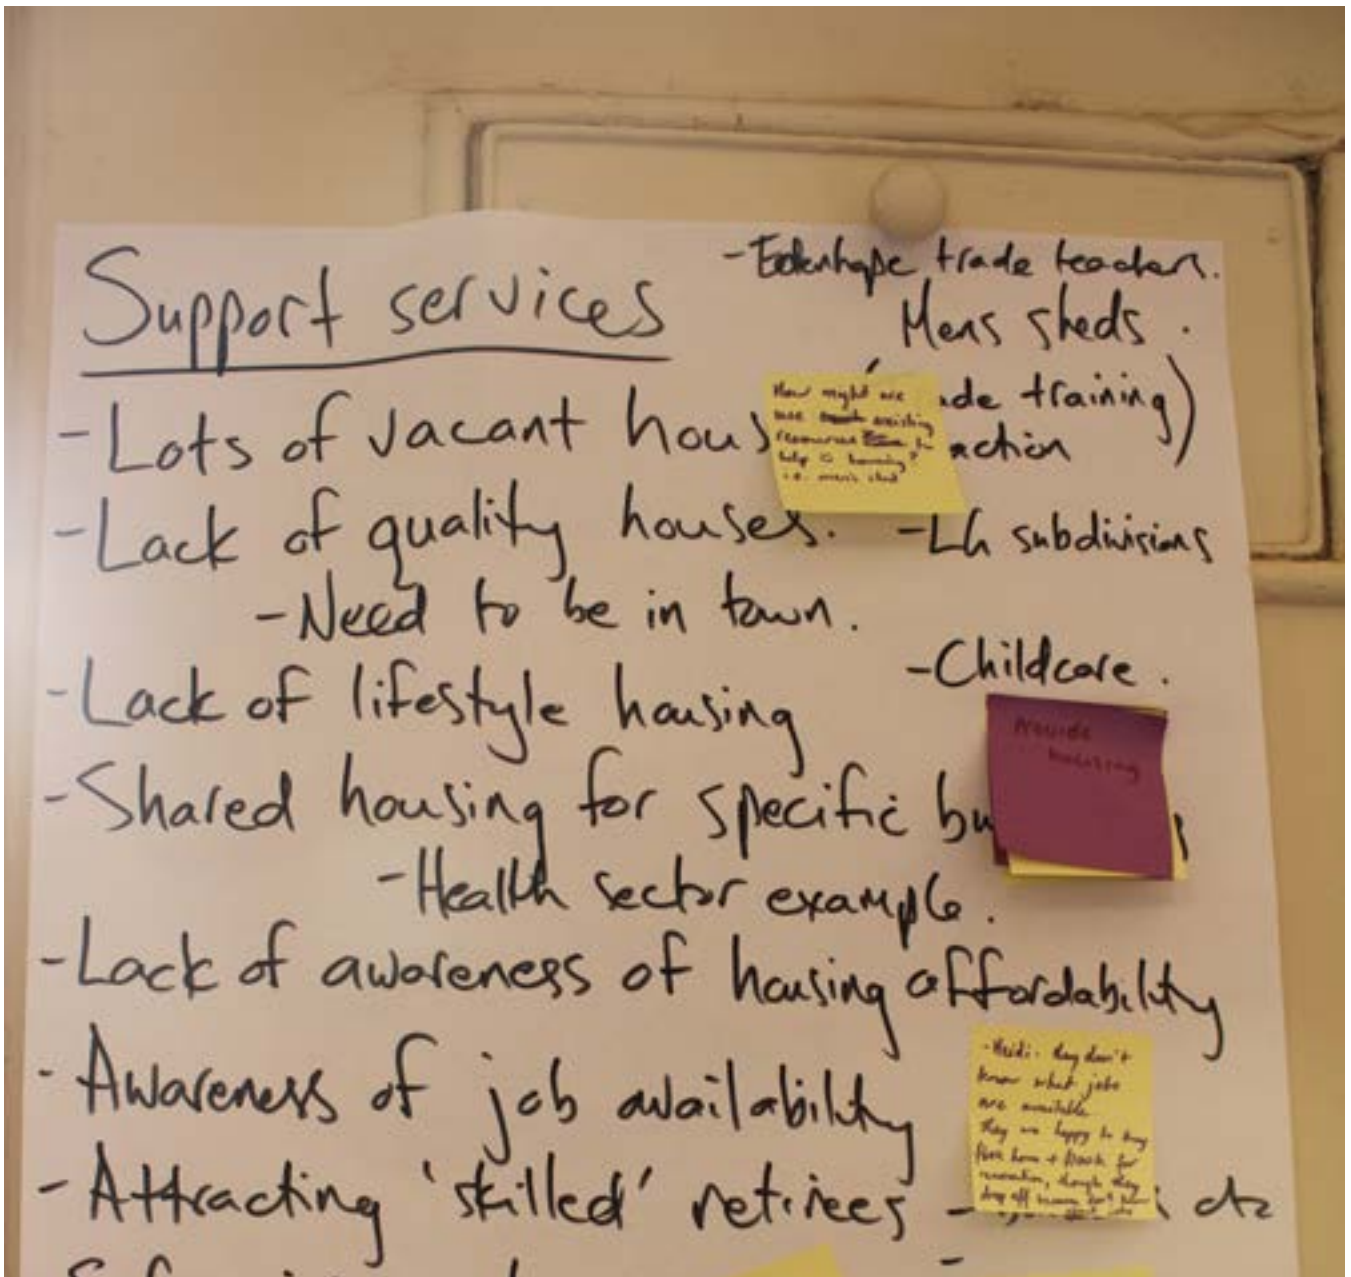 Support services
- Lots of vacant hous
- Lack of quality houses.
- Need to be in town.
- Lack of lifestyle housing
- Shared housing for specific bu
- Health sector example.
- Lack of awareness of housing affordability
- Awareness of job availability
- Attracting 'skilled' retirees -
- Edenhope trade teachers.
Mens sheds.
ade training)
action
- LG subdivisions
- Childcare.
How might we
use existing
resources to
help housing?
i.e. men's shed
Provide
housing
- Heidi. they don't
know what jobs
are available
they are happy to buy
for
renovation, though they
drop off